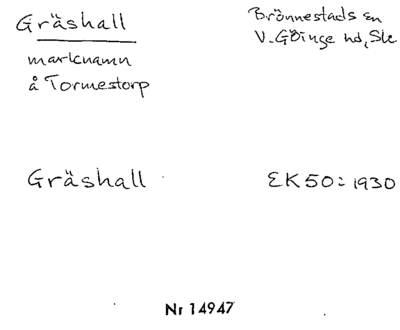 Gräshall
Brönnestads sn
V. Göinge hd, Sk
marknamn
å Tormestorp
Gräshall
EK50: 1930
Nr 14947